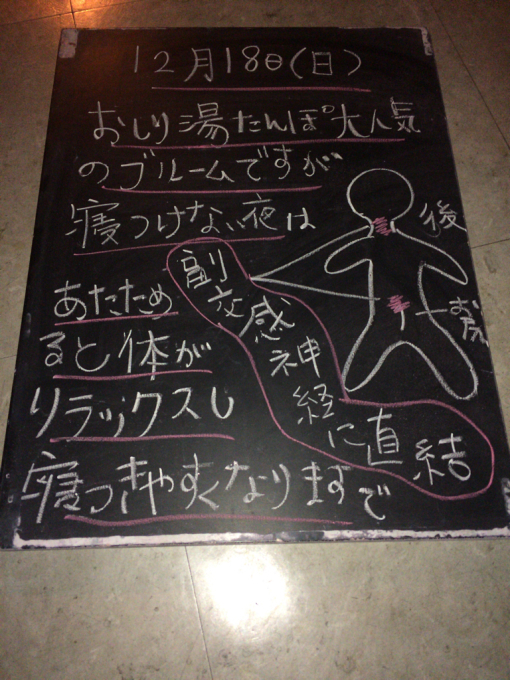 12月18日(日)
おしり湯たんぽ大人気
のブルームですが
寝つけない夜は
あたため
ると体が
リラックスし
寝つきやすくなりますで
副交感神経に直結
後
お尻